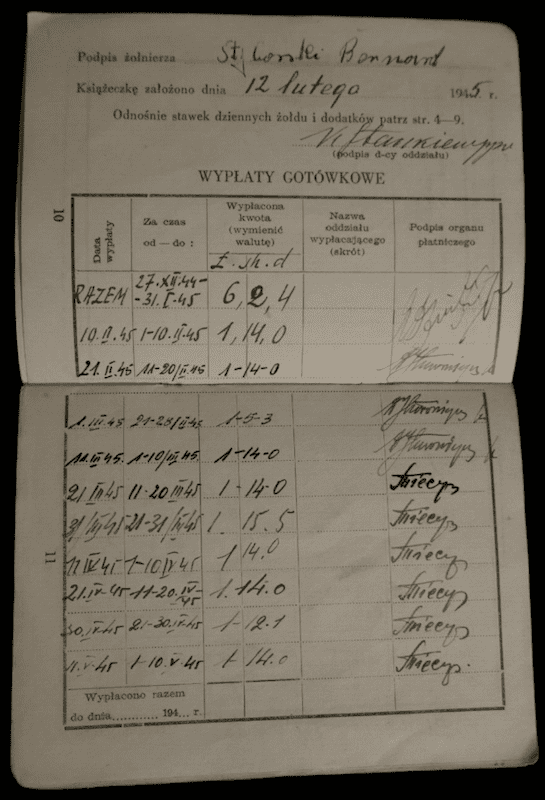 Podpis żołnierza Styborski Bernard
Książeczkę założono dnia 12 lutego 1945 r.
Odnośnie stawek dziennych żołdu i dodatków patrz str. 4—9.
(podpis d-cy oddziału)
WYPŁATY GOTÓWKOWE
10
Data wypłaty
Za czas od — do :
Wypłacona kwota (wymienić walutę)
£. sh. d
Nazwa oddziału wypłacającego (skrót)
Podpis organu płatniczego
RAZEM 27.XII.44- -31.I.45 6, 2, 4
10.II.45 1-10.II.45 1, 14, 0
21.II.45 11-20/II.45 1-14-0
1.III.45 21-28/II45 1-5-3
11.III.45. 1-10/III.45. 1-14-0
21 III 45 11-20 III 45 1-14-0
31/III 45 21-31/III 45 1. 15.5
11 IV 45 1-10.IV 45 1 14.0
21.IV-45 11-20.IV-45 1.14.0
30.IV-45 21-30.IV-45 1-12.1
11.V-45 1-10.V-45 1-14.0
11
Wypłacono razem
do dnia............ 194... r.